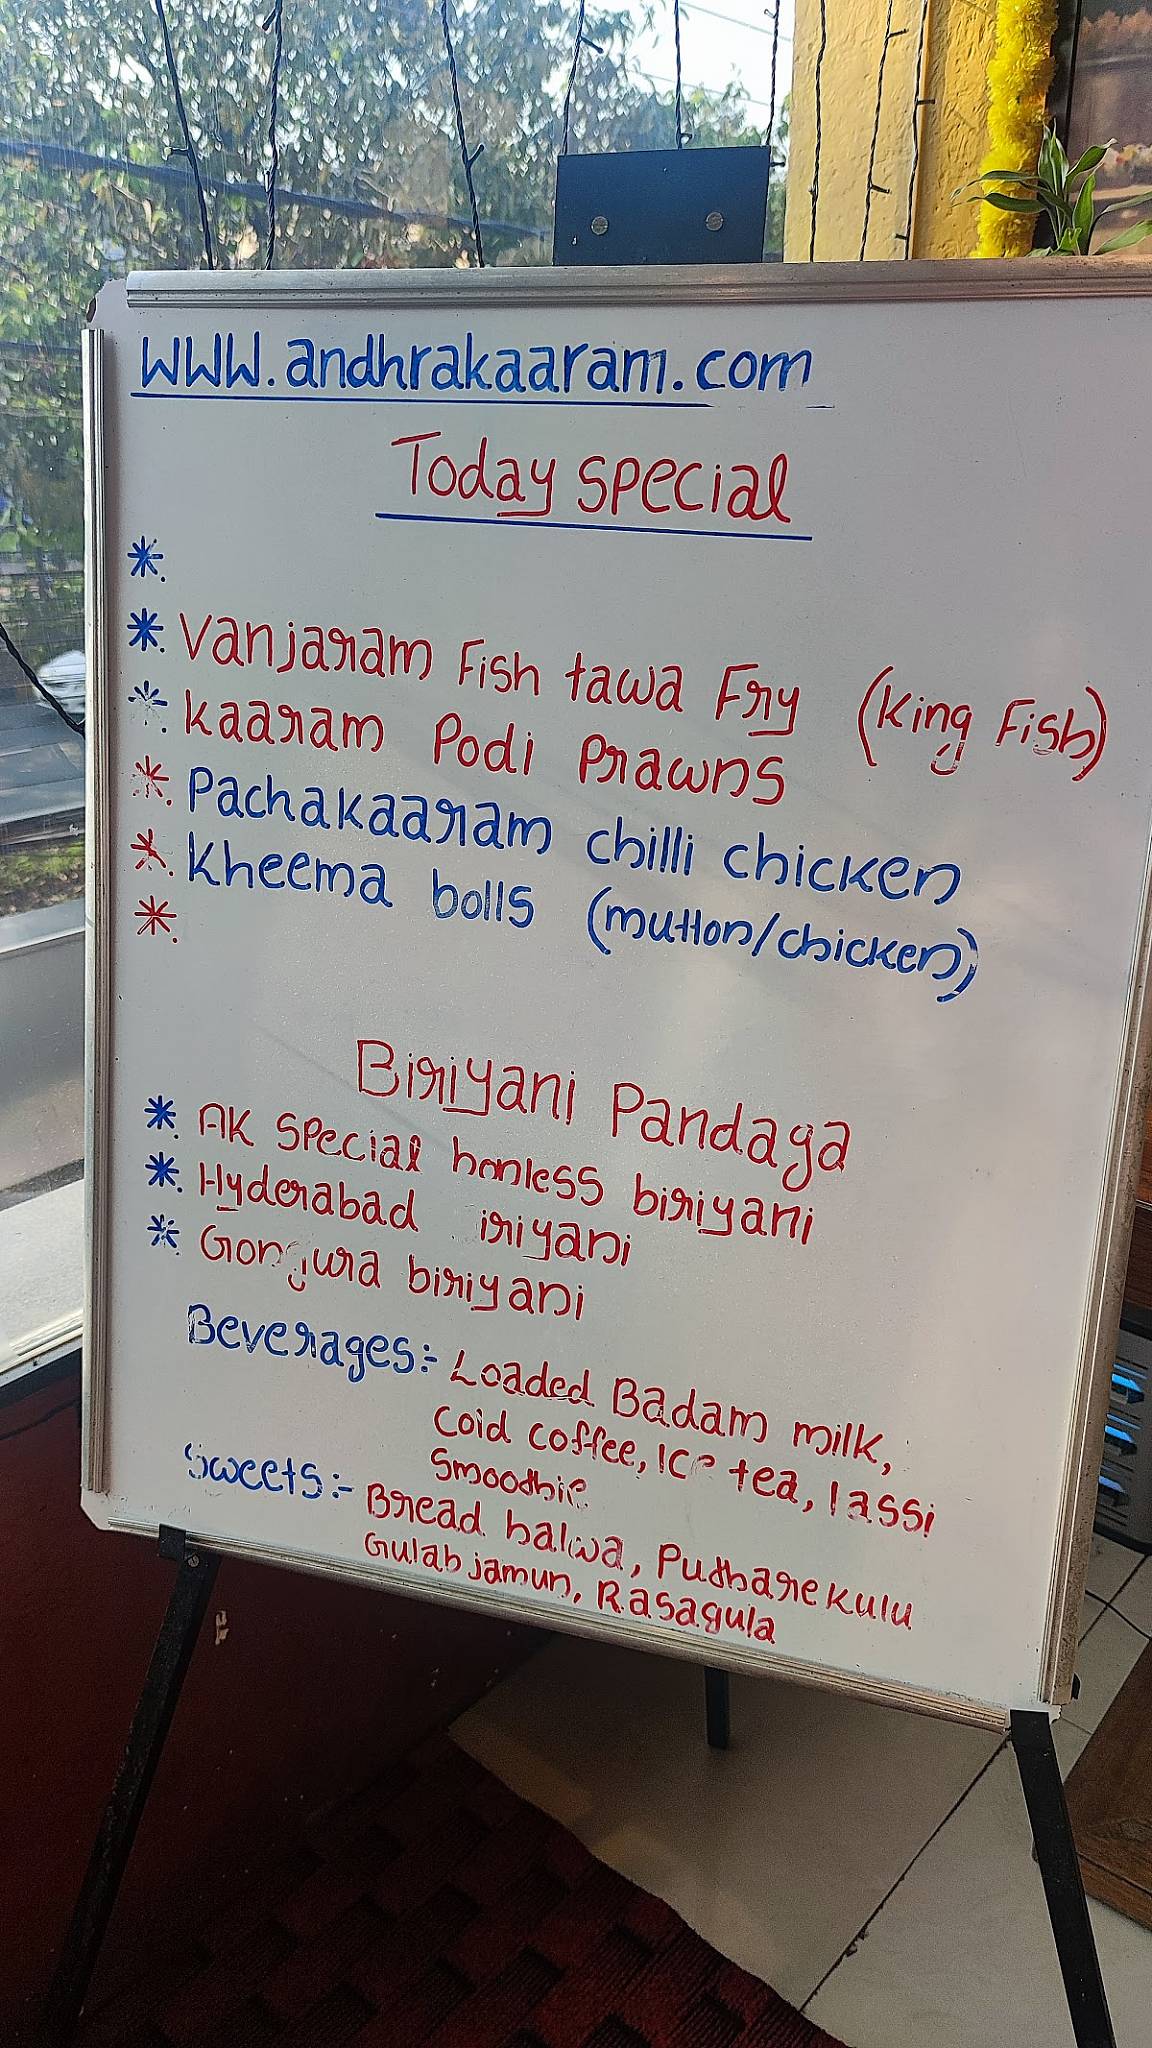 www.andhrakaaram.com
Today special
*.
*. Vanjaram Fish tawa Fry (King Fish)
*. Kaaram Podi Prawns
*. Pachakaaram chilli chicken
*. Kheema bolls (mutton/chicken)
*.
Biriyani Pandaga
*. AK Special bonless biriyani
*. Hyderabad iriyani
*. Gongura biriyani
Beverages:- Loaded Badam milk,
Cold coffee, Ice tea, lassi
Smoothie
Sweets:- Bread halwa, Putharekulu
Gulab jamun, Rasagula